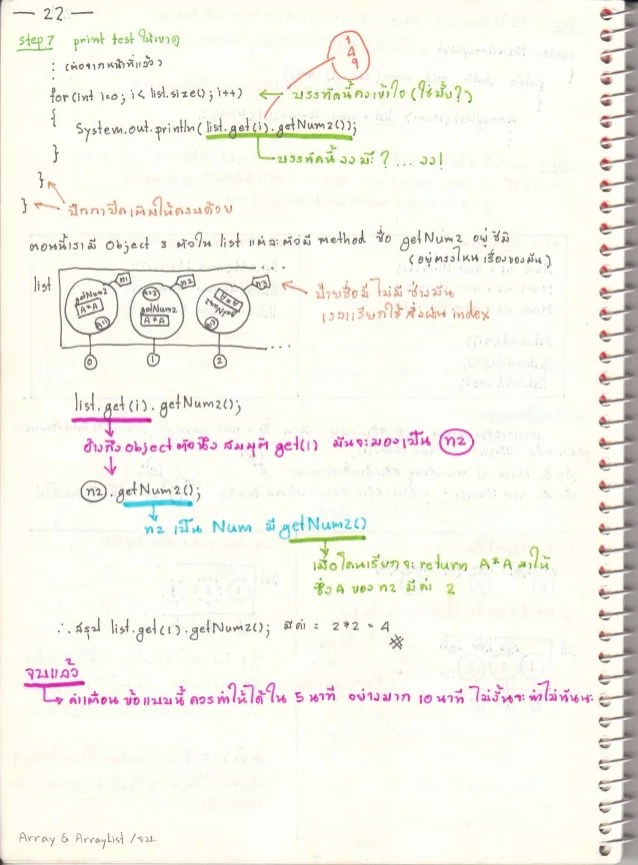 — 22 —
step 7 print test ให้เขาดู
1
4
9
: (ต่อจากหน้าที่แล้ว)
for(int i=0; i< list.size(); i++) ← บรรทัดนี้คงเข้าใจ (ใช่มั้ย?)
{
System.out.println(list.get(i).getNum2());
}
บรรทัดนี้ งง มะ? งง!
}
} ← ปีกกาปิดเติมให้ครบด้วย
ตอนนี้เรามี Object 3 ตัวใน list แต่ละตัวมี method ชื่อ getNum2 อยู่ชิมิ
(อยู่ตรงไหนเรื่องของมัน)
list
n1 n2 n3
getNum2 A*A A=1
A=2 getNum2 A*A
0 1 2
← ป้ายชื่อมี ไม่มี ช่างมัน
เวลาเรียกใช้สั่งผ่าน index
list.get(i).getNum2();
อ้างถึง object ตัวนึง สมมุติ get(1) มันจะมองเป็น n2
n2.getNum2();
n2 เป็น Num มี getNum2()
เมื่อโดนเรียกจะ return A*A มาให้
ซึ่ง A ของ n2 มีค่า 2
∴ สรุป list.get(1).getNum2(); มีค่า = 2*2 = 4
จบแล้ว
คำเตือน ข้อแบบนี้ ควรทำให้ได้ใน 5 นาที อย่างมาก 10 นาที ไม่งั้นจะทำไม่ทันนะ
Array & ArrayList /จบ.